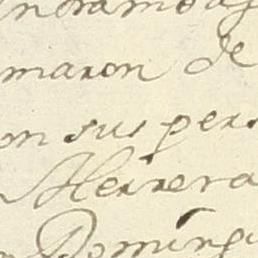 maron de
on sus pers
Herrera
Doming